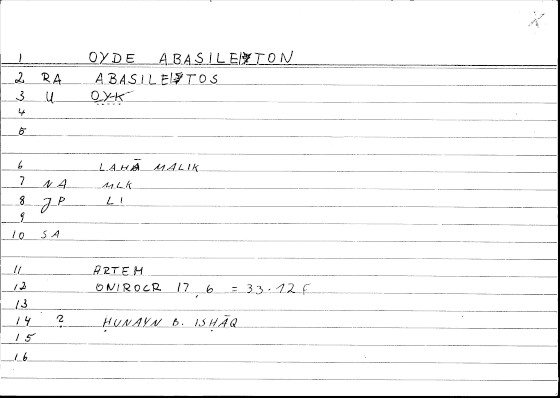 1 OYDE ABASILEUTON
2 RA ABASILEUTOS
3 U OYK
4
5
6 LAHĀ MALIK
7 NA MLK
8 JP LI
9
10 SA
11 ARTEM
12 ONIROCR 17, 6 = 33.12 F
13
14 ? ḤUNAYN B. ISḤĀQ
15
16